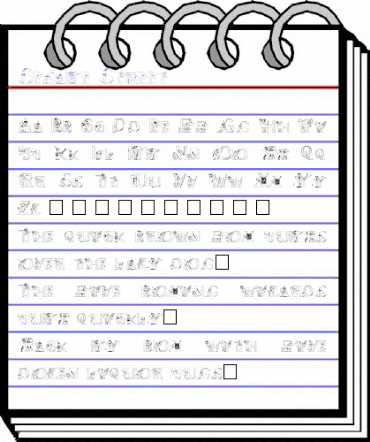 Sesame Street
Aa Bb Cc Dd Ee Ff Gg Hh Ii
Jj Kk Ll Mm Nn Oo Pp Qq
Rr Ss Tt Uu Vv Ww Xx Yy
Zz
THE QUICK BROWN FOX JUMPS
OVER THE LAZY DOG
THE FIVE BOXING WIZARDS
JUMP QUICKLY
PACK MY BOX WITH FIVE
DOZEN LIQUOR JUGS